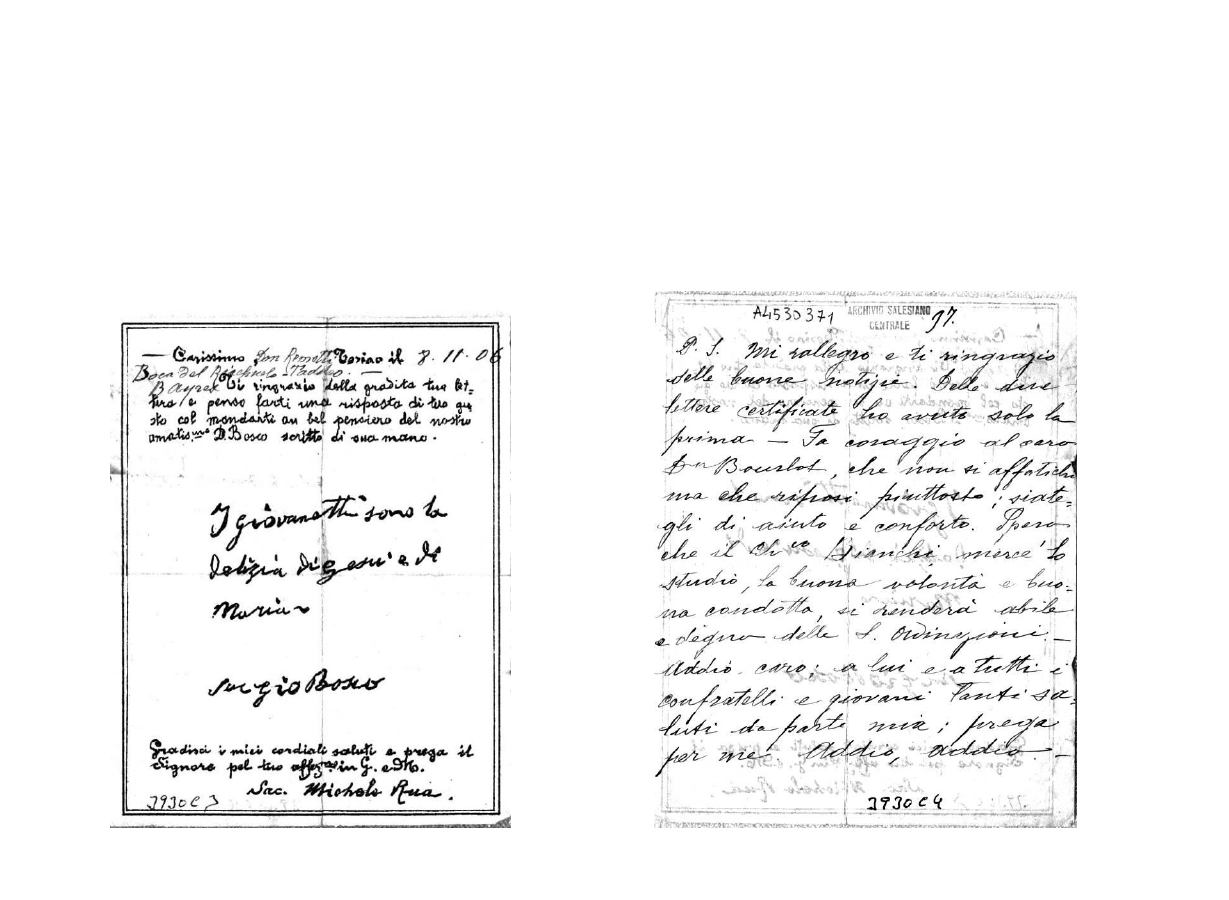 — Carissimo Don Torino il 8-11-06
Boca del Riachuelo - Taddeo. —
B Ayres Ti ringrazio della gradita tua let-
tera e penso farti una risposta di tuo gu
sto col mandarti un bel pensiero del nostro
amatis.mo D. Bosco scritto di sua mano.
I giovanetti sono la
delizia di Gesù e di
Maria
Sac gio Bosco
Gradisci i miei cordiali saluti e prega il
Signore pel tuo in G. e M.
Sac. Michele Rua.
3930 C 3
A4530371 ARCHIVIO SALESIANO 37.
CENTRALE
P. S. Mi rallegro e ti ringrazio
delle buone notizie. Delle due
lettere certificate ho avuto solo la
prima — Fa coraggio al caro
Dn Bourlot, che non si affatichi
ma che riposi piuttosto; siate-
gli di aiuto e conforto. Spero
che il Ch.co Bianchi, mercè lo
studio, la buona volontà e buo-
na condotta, si renderà abile
e degno delle S. Ordinazioni. —
Addio caro; a lui e a tutti i
confratelli e giovani tanti sa-
luti da parte mia; prega
per me. Addio, addio —
3930 C 4